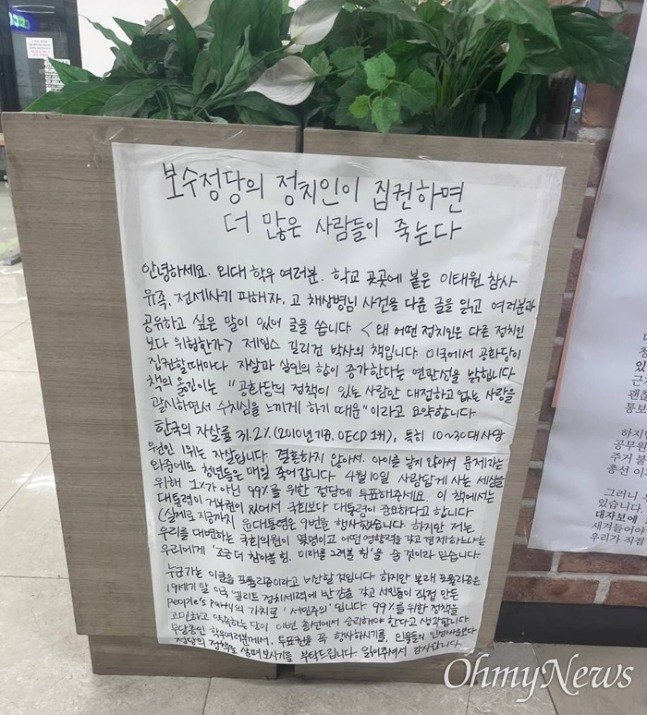 보수정당의 정치인이 집권하면
더 많은 사람들이 죽는다
안녕하세요. 외대 학우 여러분. 학교 곳곳에 붙은 이태원 참사
유족, 전세사기 피해자, 고 채상병님 사건을 다룬 글을 읽고 여러분과
공유하고 싶은 말이 있어 글을 씁니다. <왜 어떤 정치인은 다른 정치인
보다 위험한가> 제임스 길리건 박사의 책입니다. 미국에서 공화당이
집권할때마다 자살과 살인의 합이 증가한다는 연관성을 밝힙니다
책의 옮긴이는 "공화당의 정책이 있는 사람만 대접하고 없는 사람을
괄시하면서 수치심을 느끼게 하기 때문"이라고 요약합니다.
한국의 자살률 31.2% (2010년 기준. OECD 1위), 특히 10~30대 사망
원인 1위는 자살입니다. 결혼하지 않아서. 아이를 낳지 않아서 문제라는
와중에도 청년들은 매일 죽어갑니다. 4월 10일 사람답게 사는 세상을
위해 1%가 아닌 99%를 위한 정당에 투표해주세요. 이 책에서는
대통령이 거부권이 있어서 국회보다 대통령이 중요하다고 합니다
(실제로 지금까지 윤대통령은 9번을 행사했습니다) 하지만 저는
우리를 대변하는 국회의원이 몇명이고 어떤 영향력을 갖고 견제하느냐는
우리에게 '조금 더 참아볼 힘, 미래를 그려볼 힘'을 줄 것이라 믿습니다.
누군가는 이런걸 포퓰리즘이라고 비난할 것입니다. 하지만 본래 포퓰리즘은
19세기 말 미국 엘리트 정치세력에 반감을 갖고 서민들이 직접 만든
people's party의 가치로 '서민주의'입니다. 99%를 위한 정책을
고민하고 약속하는 당이 이번 총선에서 승리해야 한다고 생각합니다.
무당층인 학우여러분께서, 투표권을 꼭 행사하시기를, 인물들의
정당의 정책을 살펴보시기를 부탁드립니다. 읽어주셔서 감사합니다.
하지만
공무원
주거 불
총선 이
그러니
있습니다.
대자보에
새겨들어야
우리가 직접
OhmyNews